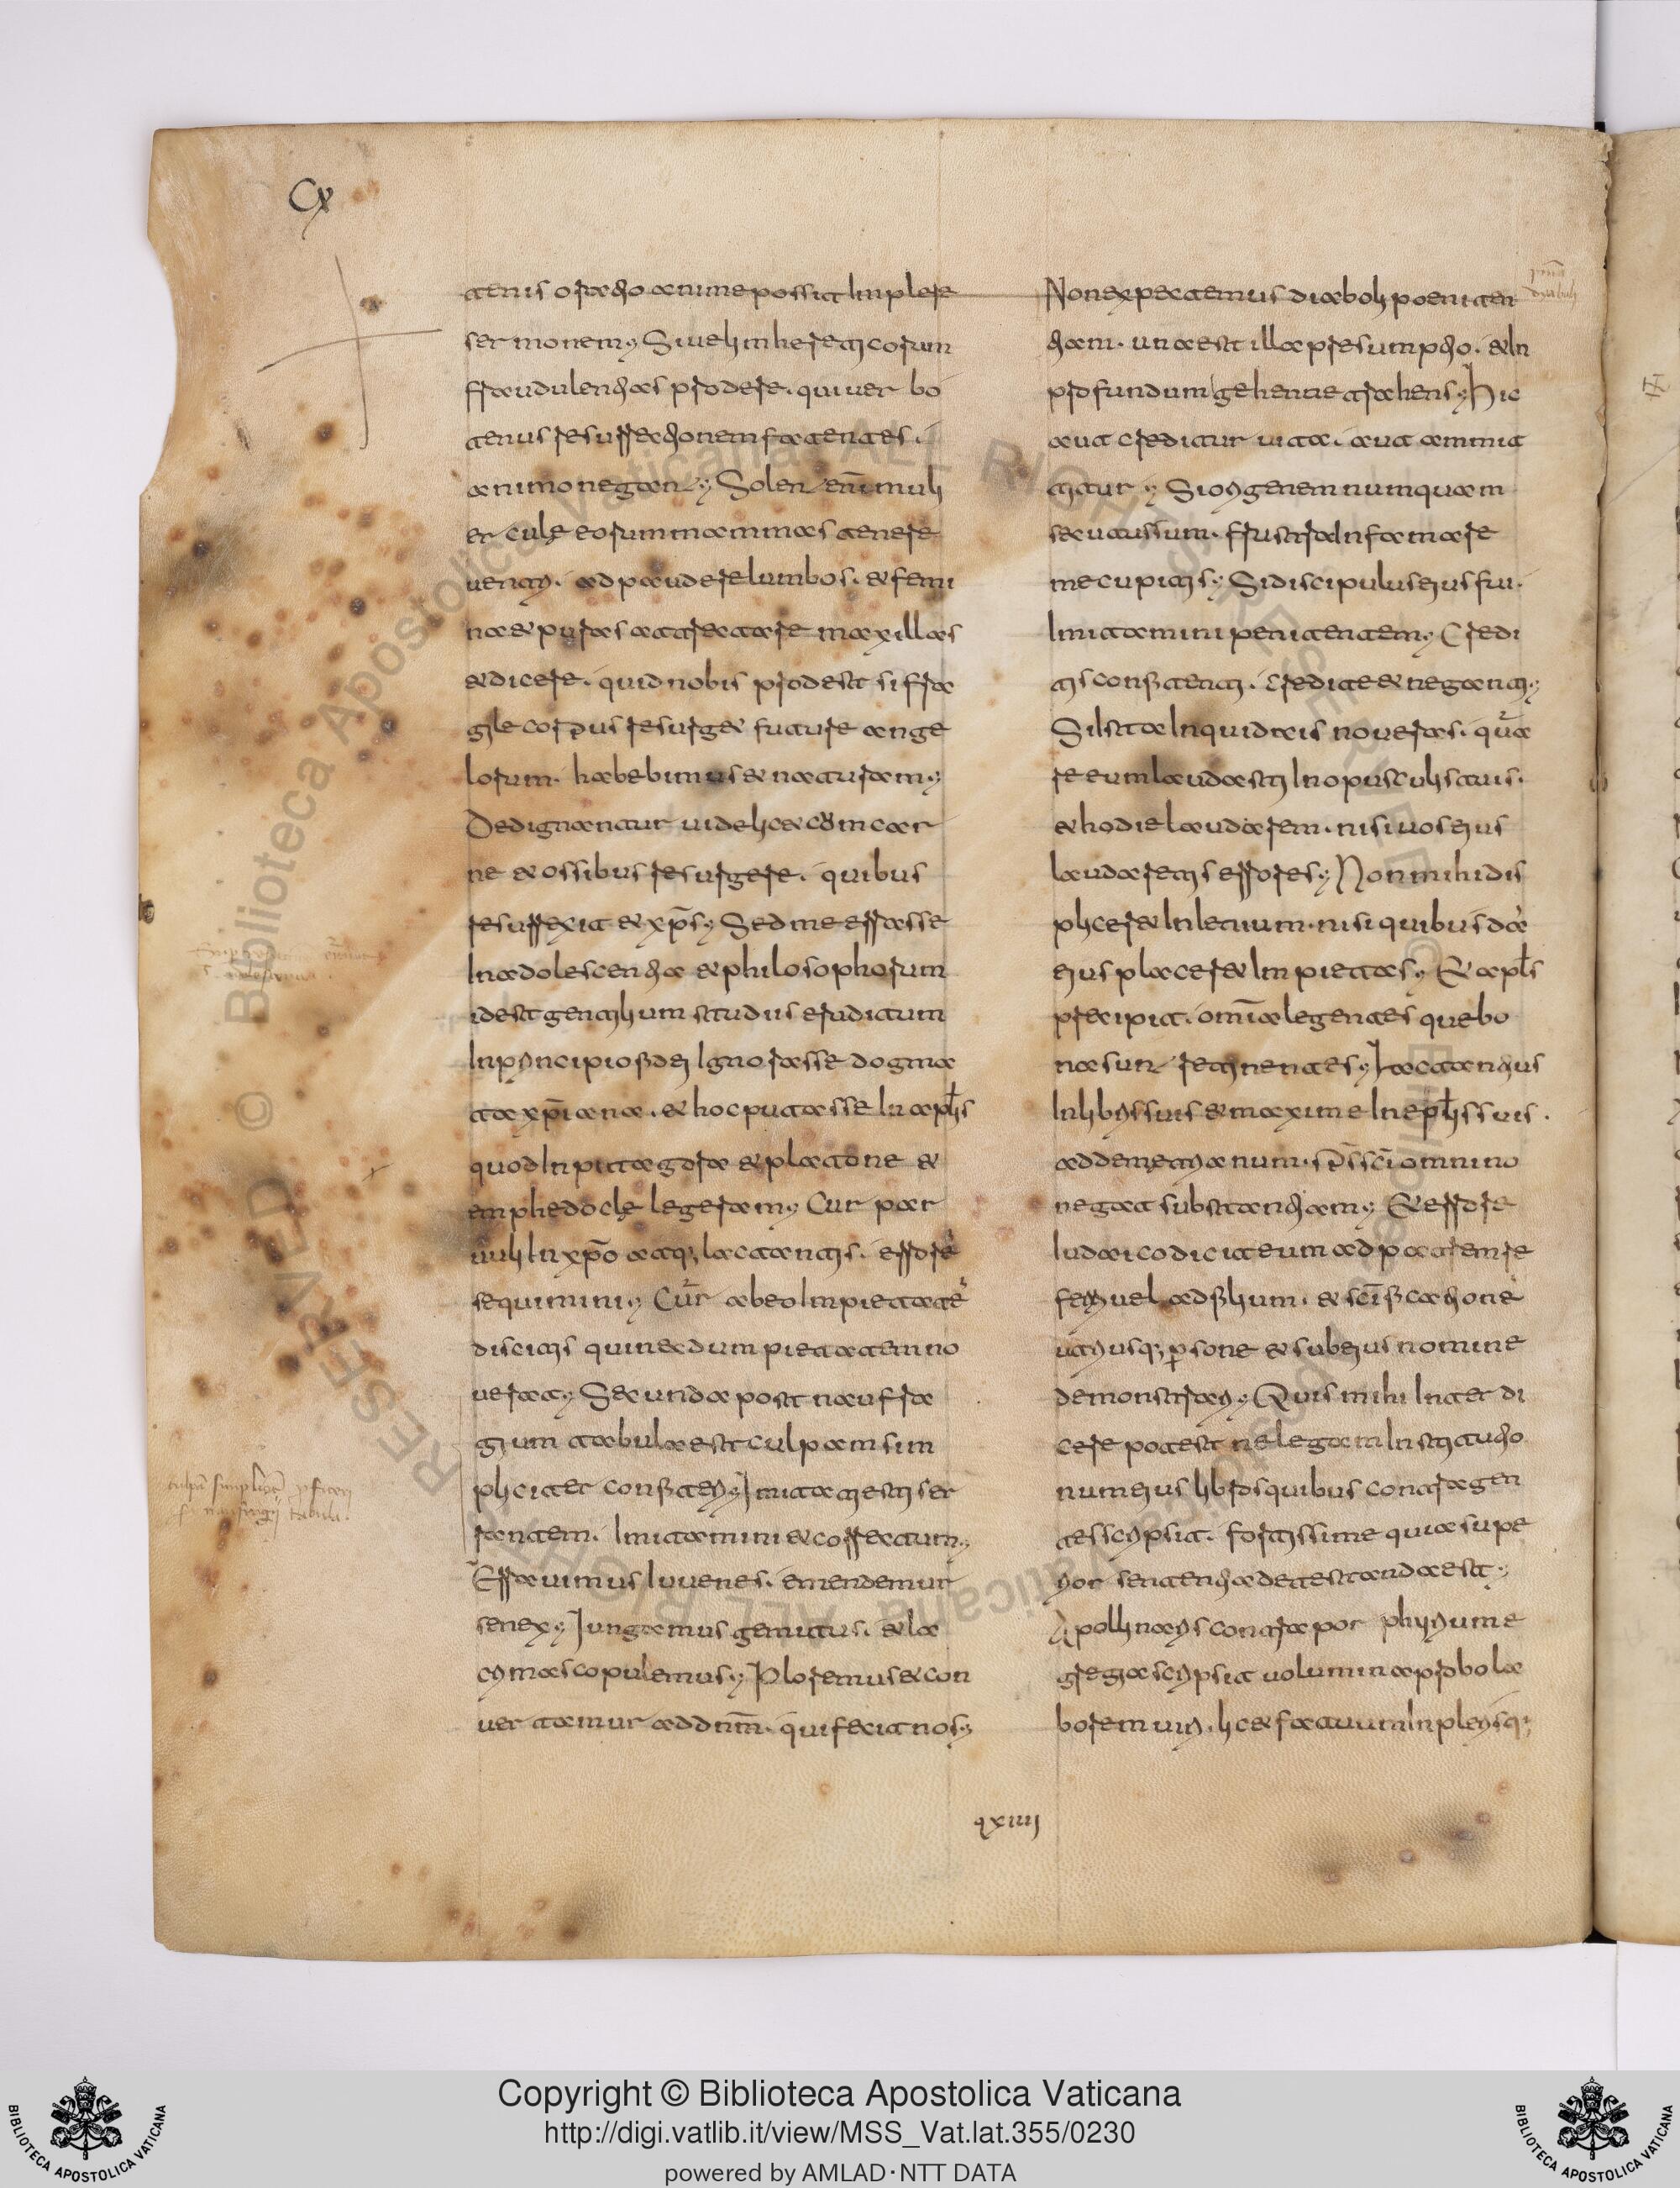 Cx
tenus oratio anime possit Implere
sermonem; Si uelim hereticorum
fraudulentias prodere. qui uer bo
tenus resurrectionem fatentes.
animo negant; Solent enī muli
er culę eorum mammas tenere
uentrē. ad paudere lumbos. & femi
na & puras attrectare maxillas
& dicere. quid nobis prodest si fra
gile corpus resurget future ange
lorum. habebimus & naturam;
Dedignantur uidelicet cum car
ne & ossibus resurgere. quibus
resurrexit & xp̄s; Sed me errasse
In adolescentia & philosophorum
idest gentilium studiis eruditum
In principio fidei Ignorasse dogma
ta xp̄iana. & hoc putasse In apłis
quod In pitagora & platone &
emphedoclę legeram; Cur par
uuli In xp̄o atq; lactantis. errorē
sequimini; Cur ab eo Impietatē
discitis qui necdum pietatem no
uerat; Secunda post naufra
gium tabula est culpam sim
pliciter confiteri; Imitati estis er
rantem. Imitamini & correctum;
Errauimus Iuuenes. emendemur
senex; Iungamus gemitus. & la
crimas copulemus; Ploremus & con
uer tamur ad dn̄m. qui fecit nos;
Non expectemus diaboli poeniten
tiam. una est illa presumptio. & In
profundum gehenne trahens; Hic
aut creditur uita. aut ammit
titur; Si origenem numquam
secutus sum. frustra Infamare
me cupitis; Si discipulus eius fui.
Imitamini penitentem; Credi
tis confitenti. credite & neganti;
Si Ista Inquid reis noueras. qua
re eum laudasti In opusculis tuis.
& hodie laudarem. nisi uos eius
laudaretis errores; Non mihi dis
pliceret Ingenium. nisi quibusdā
eius placeret Impietas; Et apłs
precipit. omīa legentes que bo
na sunt retinentes; Lactantius
In libris suis & maxime In epłis suis.
ad demetrianum. sp̄s sc̄i omnino
negat substantiam; Et errore
Iudaico dicit eum ad patrem re
ferri uel ad filium. & sc̄ificationē
utriusq; psone & sub eius nomine
demonstrari; Quis mihi Inter di
cere potest ne legam Institutio
num eius libros quibus contra gen
tes scripsit. fortissime quia supe
rior sententia detestanda est;
Apollinaris contra por phirium e
gregia scripsit uolumina probo la
borem uiri. licet fatuum In plerisq;
qxiiii
Copyright © Biblioteca Apostolica Vaticana
http://digi.vatlib.it/view/MSS_Vat.lat.355/0230
powered by AMLAD·NTT DATA
BIBLIOTECA APOSTOLICA VATICANA
BIBLIOTECA APOSTOLICA VATICANA